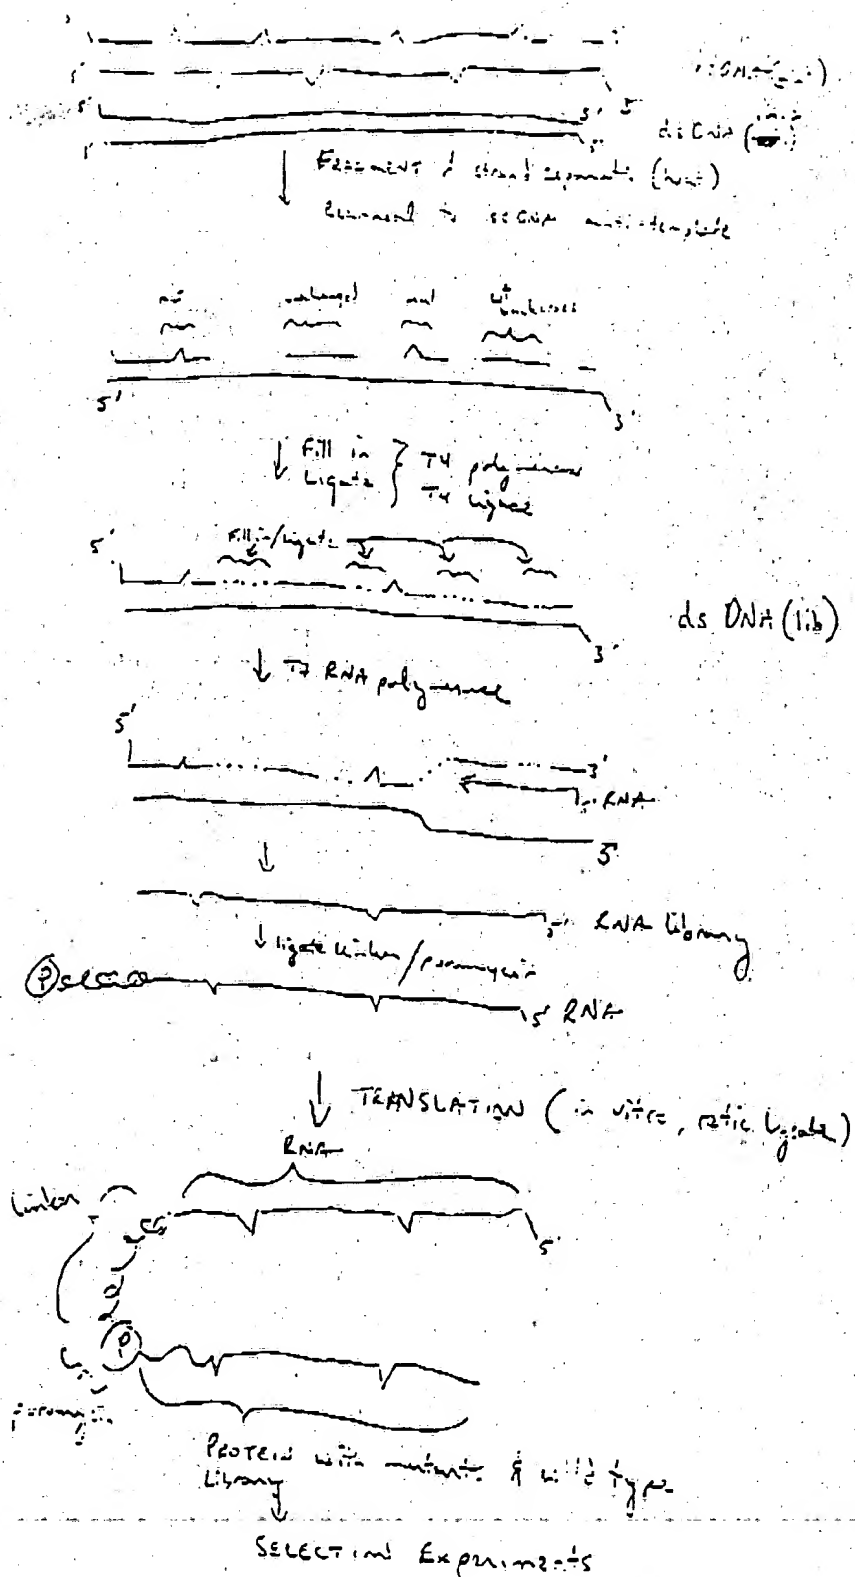 5' 3' 5'
ds DNA
FRAGMENT & strand separate (heat)
Reanneal to ssDNA anti-template
mut unchanged mut wt
5' 3'
Fill in
Ligate } T4 polymerase
T4 ligase
5' Fill in/ligate
ds DNA (lib)
3'
↓ T7 RNA polymerase
5'
3'
RNA
5'
5' RNA Library
↓ ligate linker/puromycin
P 5' RNA
↓ TRANSLATION (in vitro, retic lysate)
RNA
linker
5'
P
puromycin
PROTEIN with mutants & wild type
Library
SELECTION Experiments